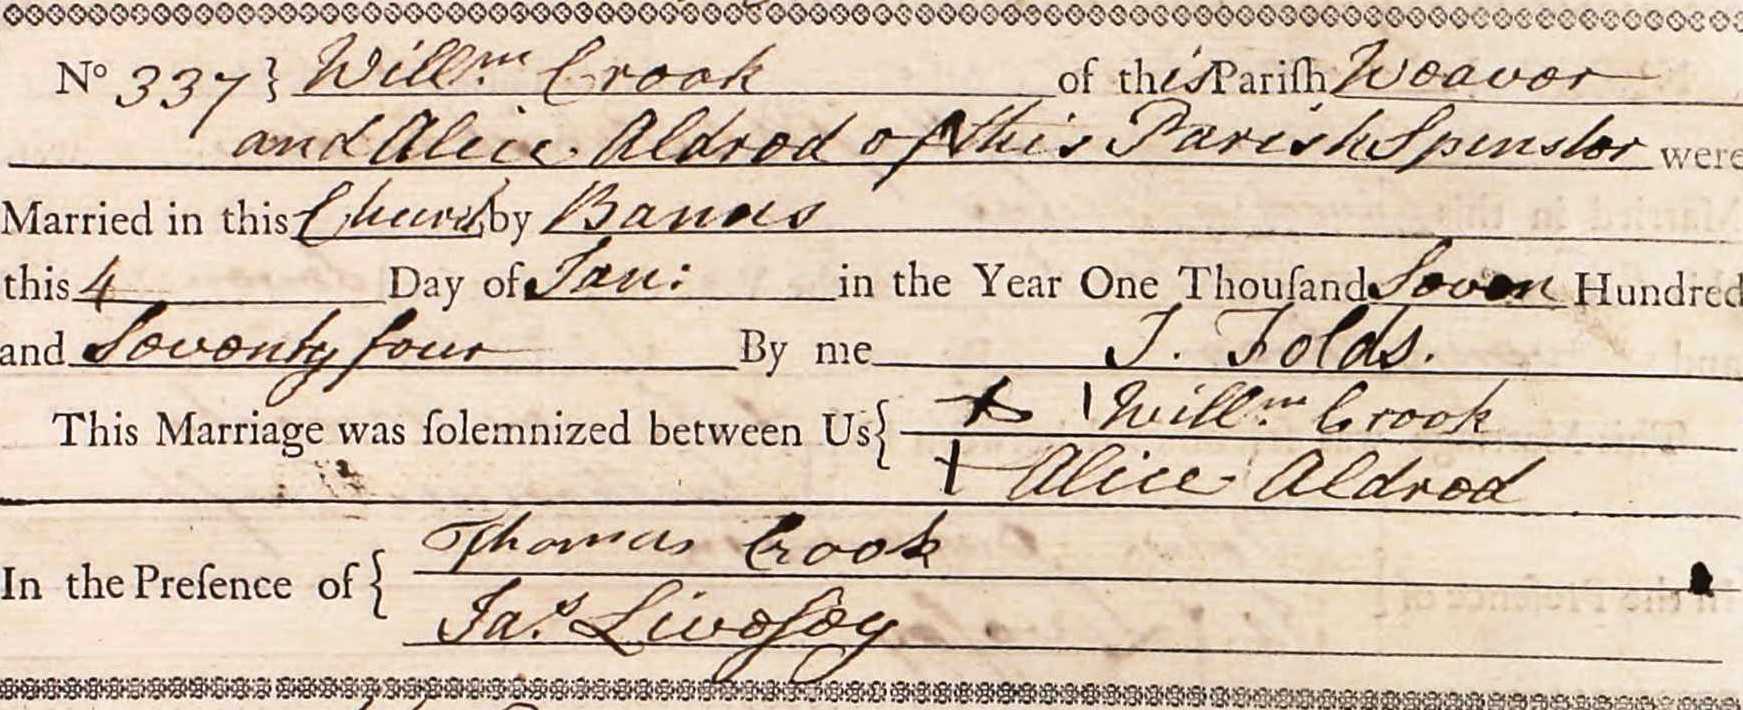 No 337 } Willm Crook of this Pariſh Weaver
and Alice Aldred of this Parish Spinster were
Married in this Church by Banns
this 4 Day of Jan: in the Year One Thouſand Seven Hundred
and Seventy four By me J. Folds.
This Marriage was ſolemnized between Us { + Willm Crook
+ Alice Aldred
In the Preſence of { Thomas Crook
Jas. Liveſey